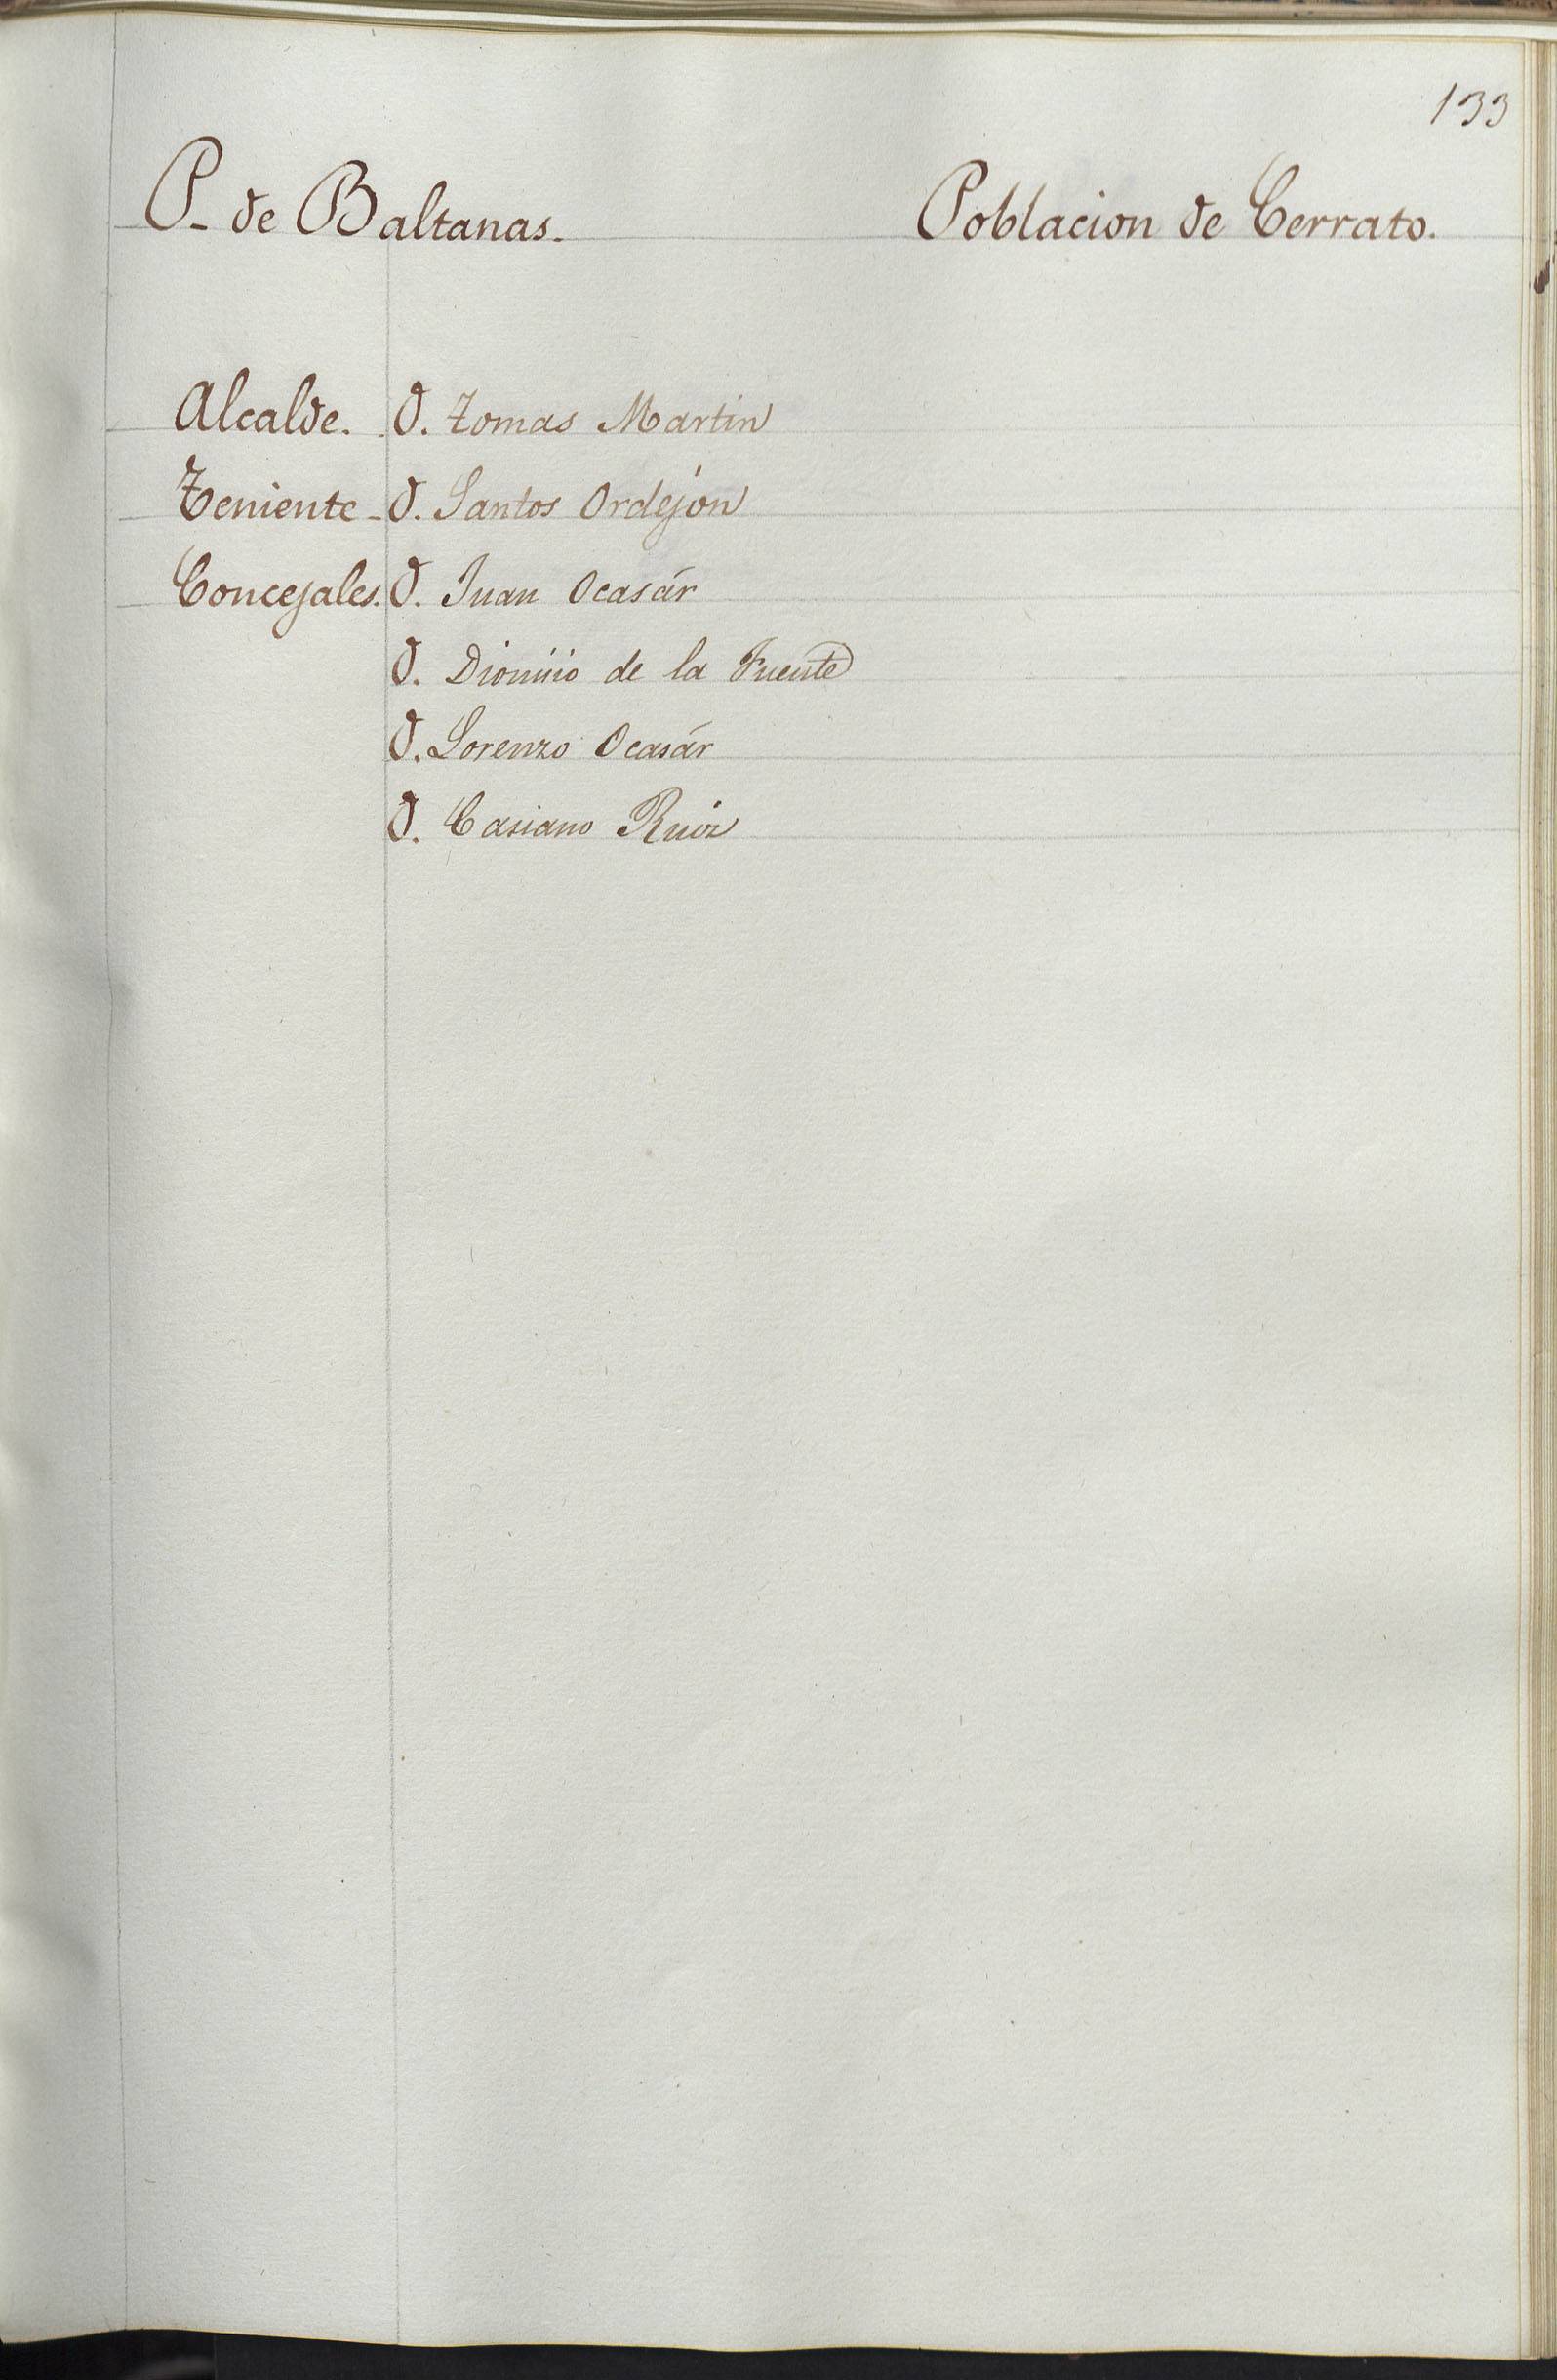 133
P. de Baltanas. Poblacion de Cerrato.
Alcalde. D. Tomas Martin
Teniente - D. Santos Ordejón
Concejales. D. Juan Ocasár
D. Dionisio de la Fuente
D. Lorenzo Ocasár
D. Casiano Ruiz